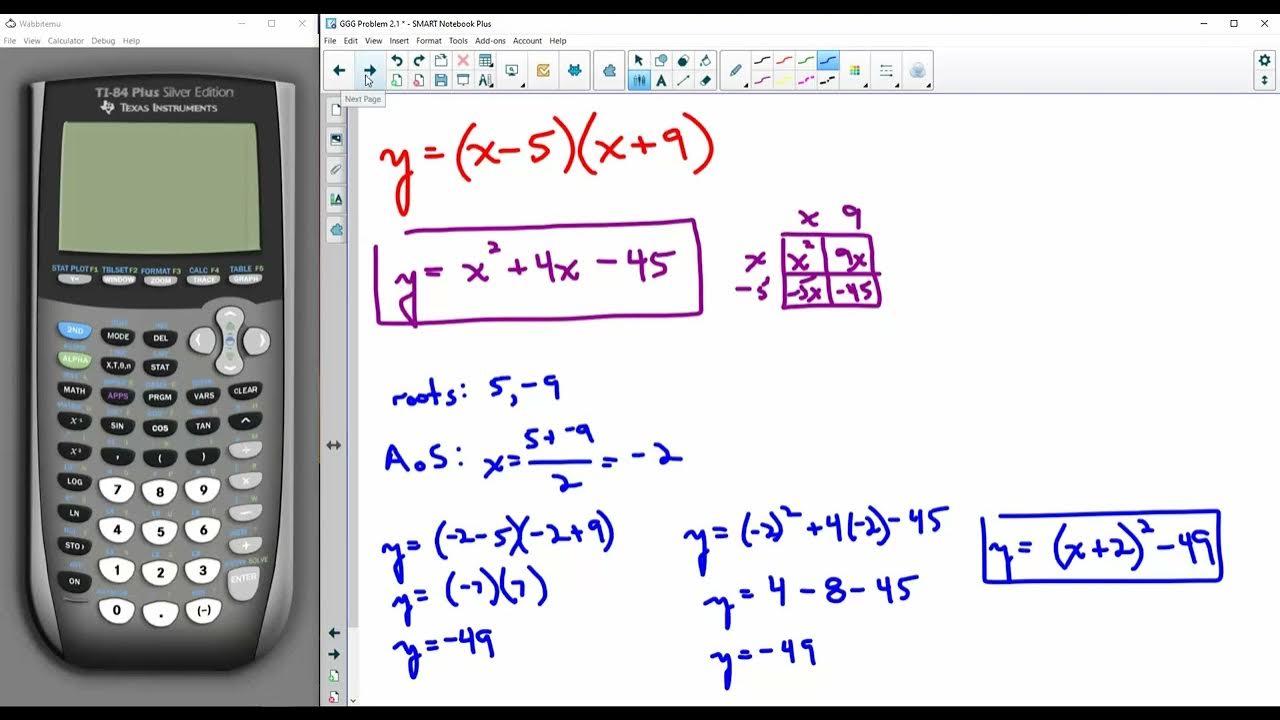 Wabbitemu
File View Calculator Debug Help
GGG Problem 2.1 * - SMART Notebook Plus
File Edit View Insert Format Tools Add-ons Account Help
Next Page
TI-84 Plus Silver Edition
TEXAS INSTRUMENTS
STAT PLOT F1 TBLSET F2 FORMAT F3 CALC F4 TABLE F5
Y= WINDOW ZOOM TRACE GRAPH
2ND MODE DEL
ALPHA X,T,θ,n STAT
MATH APPS PRGM VARS CLEAR
x⁻¹ SIN COS TAN ^
x² , ( ) ÷
LOG 7 8 9 ×
LN 4 5 6 −
STO› 1 2 3 +
ON 0 . (−) ENTER
y = (x-5)(x+9)
y = x² + 4x - 45
x 9
x x² 9x
-5 -5x -45
roots: 5, -9
AoS: x = (5 + -9)/2 = -2
y = (-2-5)(-2+9)
y = (-7)(7)
y = -49
y = (-2)² + 4(-2) - 45
y = 4 - 8 - 45
y = -49
y = (x+2)² - 49